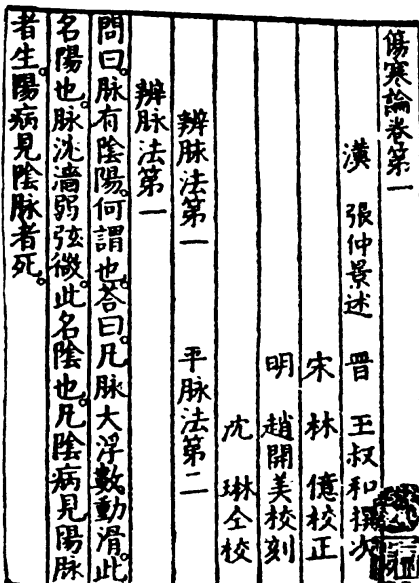 傷寒論卷第一
漢　張仲景述　晉　王叔和撰次
宋　林　億校正
明　趙開美校刻
沈　琳仝校
辨脉法第一　平脉法第二
辨脉法第一
問曰。脉有陰陽。何謂也。荅曰。凡脉大浮數動滑。此
名陽也。脉沈濇弱弦微。此名陰也。凡陰病見陽脉
者生。陽病見陰脉者死。